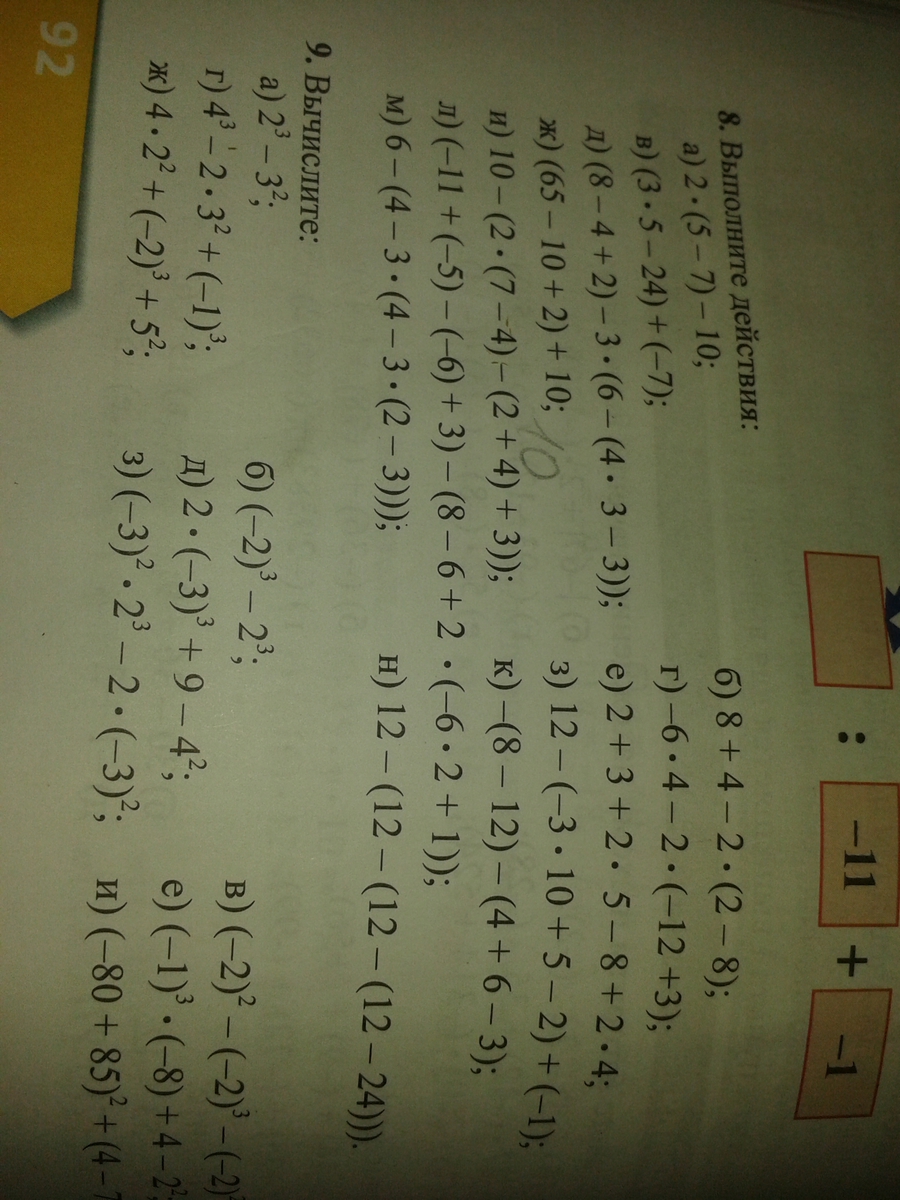 : –11 + –1
8. Выполните действия:
а) 2 · (5 – 7) – 10; б) 8 + 4 – 2 · (2 – 8);
в) (3 · 5 – 24) + (–7); г) –6 · 4 – 2 · (–12 +3);
д) (8 – 4 + 2) – 3 · (6 – (4 · 3 – 3)); е) 2 + 3 + 2 · 5 – 8 + 2 · 4;
ж) (65 – 10 + 2) + 10; 10 з) 12 – (–3 · 10 + 5 – 2) + (–1);
и) 10 – (2 · (7 – 4) – (2 + 4) + 3)); к) –(8 – 12) – (4 + 6 – 3);
л) (–11 + (–5) – (–6) + 3) – (8 – 6 + 2 · (–6 · 2 + 1));
м) 6 – (4 – 3 · (4 – 3 · (2 – 3))); н) 12 – (12 – (12 – (12 – 24))).
9. Вычислите:
а) 2³ – 3²; б) (–2)³ – 2³; в) (–2)² – (–2)³ – (–2)
г) 4³ – 2 · 3² + (–1)³; д) 2 · (–3)³ + 9 – 4²; е) (–1)³ · (–8) + 4 – 2²
ж) 4 · 2² + (–2)³ + 5²; з) (–3)² · 2³ – 2 · (–3)²; и) (–80 + 85)² + (4 –
92